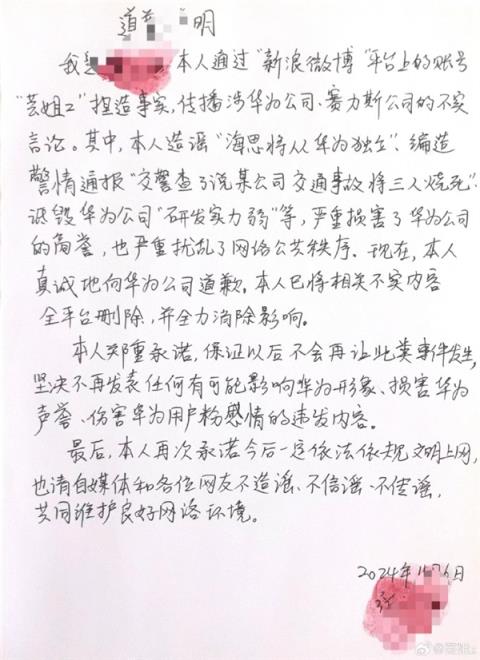 道 明
我是 本人通过“新浪微博”平台上的账号
“芸姐エ”捏造事实,传播涉华为公司、赛力斯公司的不实
言论。其中,本人造谣“海思将从华为独立”、编造
警情通报“交警查了说某公司交通事故将三人烧死”、
诋毁华为公司“研发实力弱”等,严重损害了华为公司
的商誉,也严重扰乱了网络公共秩序。现在,本人
真诚地向华为公司道歉。本人已将相关不实内容
全平台删除,并全力消除影响。
本人郑重承诺,保证以后不会再让此类事件发生,
坚决不再发表任何有可能影响华为形象、损害华为
声誉、伤害华为用户粉感情的违发内容。
最后,本人再次承诺今后一定依法依规文明上网,
也请自媒体和各位网友不造谣、不信谣、不传谣,
共同维护良好网络环境。
2024年11月6日